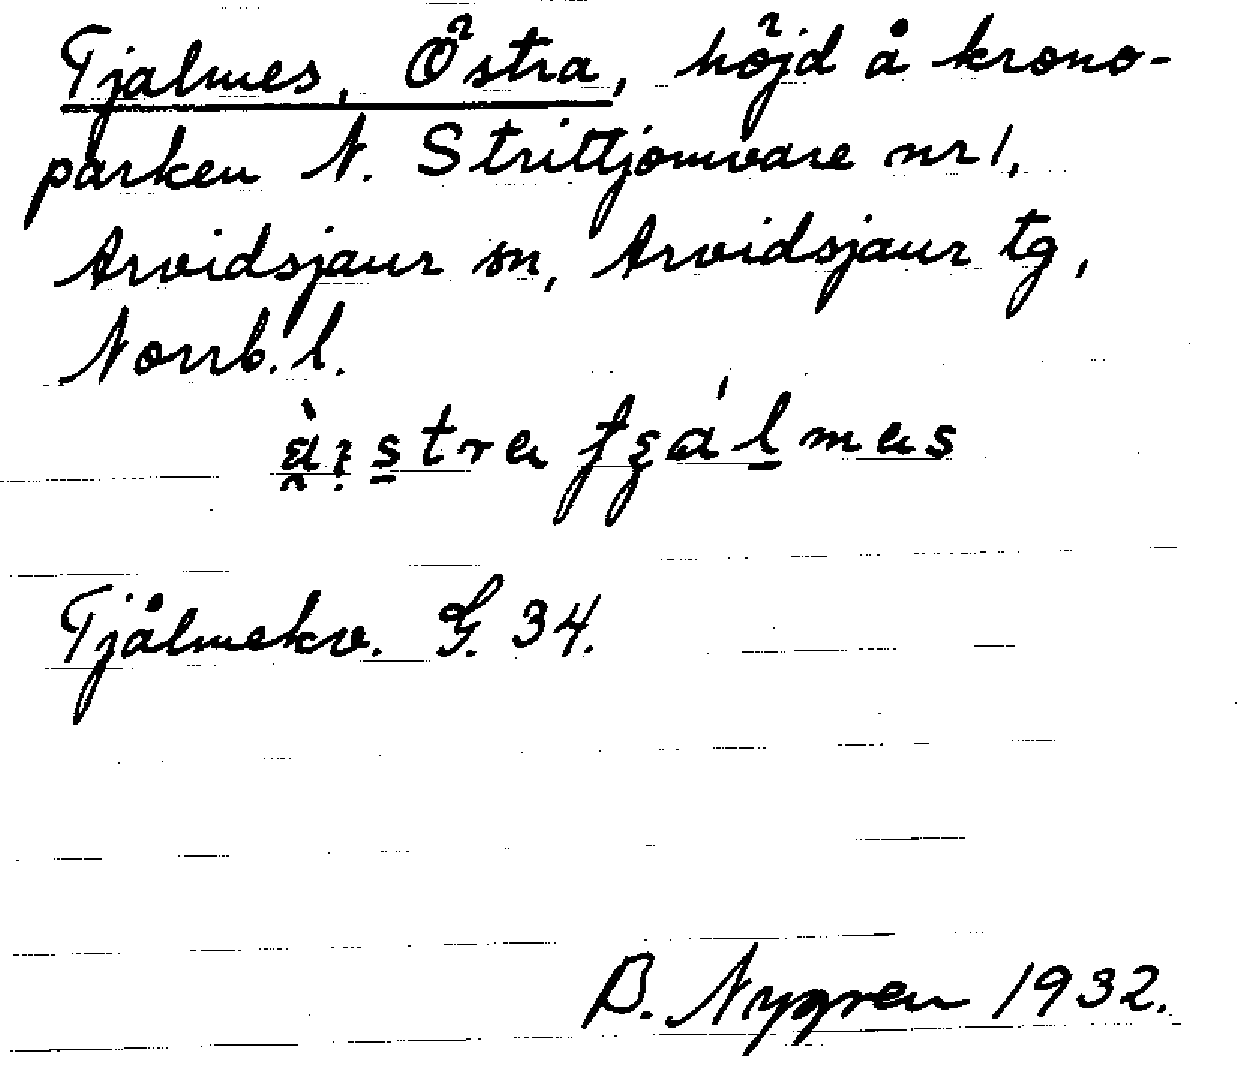 Tjalmes, Östra, höjd å krono-
parken N. Strittjomvare nr 1,
Arvidsjaur sn, Arvidsjaur tg,
Norrb. l.
Tjålmekv. G. 34.
B. Nygren 1932.